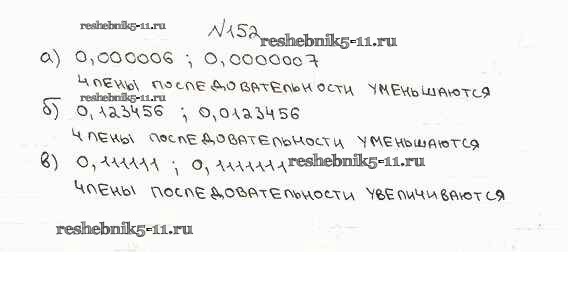 reshebnik5-11.ru
№152
reshebnik5-11.ru
а) 0,000006 ; 0,0000007
члены последовательности уменьшаются
reshebnik5-11.ru
б) 0,123456 ; 0,0123456
члены последовательности уменьшаются
в) 0,111111 ; 0,1111111
reshebnik5-11.ru
члены последовательности увеличиваются
reshebnik5-11.ru